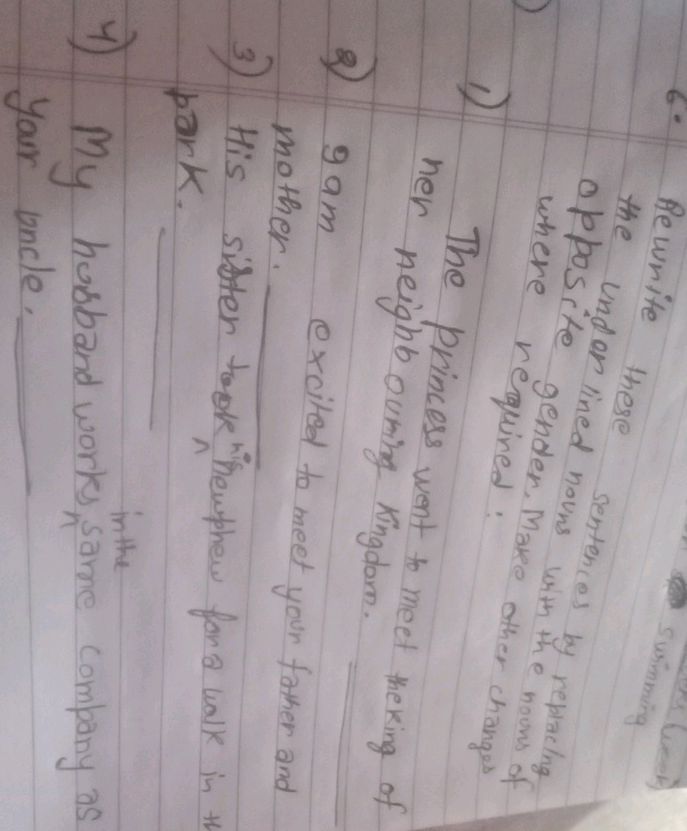 swimming
6. Rewrite these sentences by replacing
the underlined nouns with the nouns of
opposite gender. Make other changes
where required:
1) The princess went to meet the king of
her neighbouring kingdom.
2) I am excited to meet your father and
mother.
3) His sister took his newphew for a walk in th
park.
in the
4) My husband works same company as
your uncle.